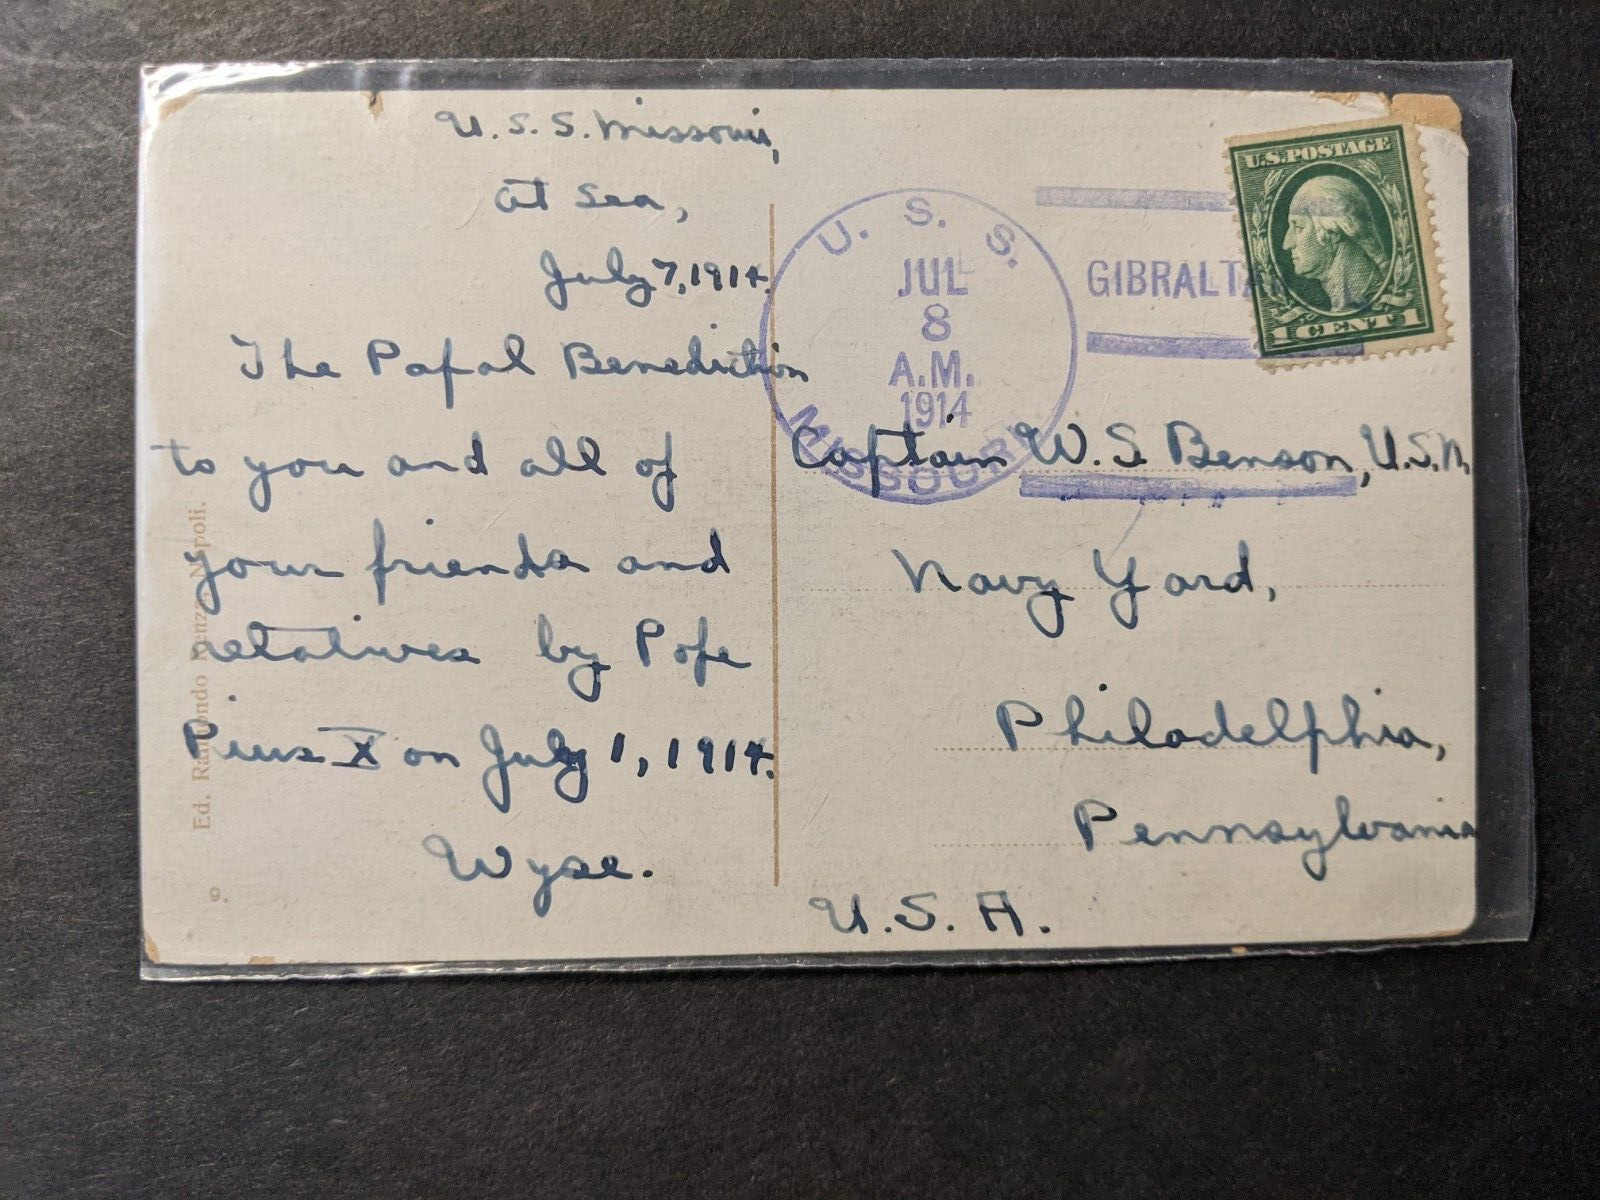 U.S.S. Missouri,
At Sea,
July 7, 1914.
The Papal Benediction
to you and all of
your friends and
relatives by Pope
Pius X on July 1, 1914.
Wyse.
Ed. Raimondo Renzo Napoli.
9.
U. S. S.
JUL
8
A.M.
1914
MISSOURI
GIBRALTAR
U.S.POSTAGE
1 CENT 1
Captain W.S. Benson, U.S.N.
Navy Yard,
Philadelphia,
Pennsylvania
U.S.A.